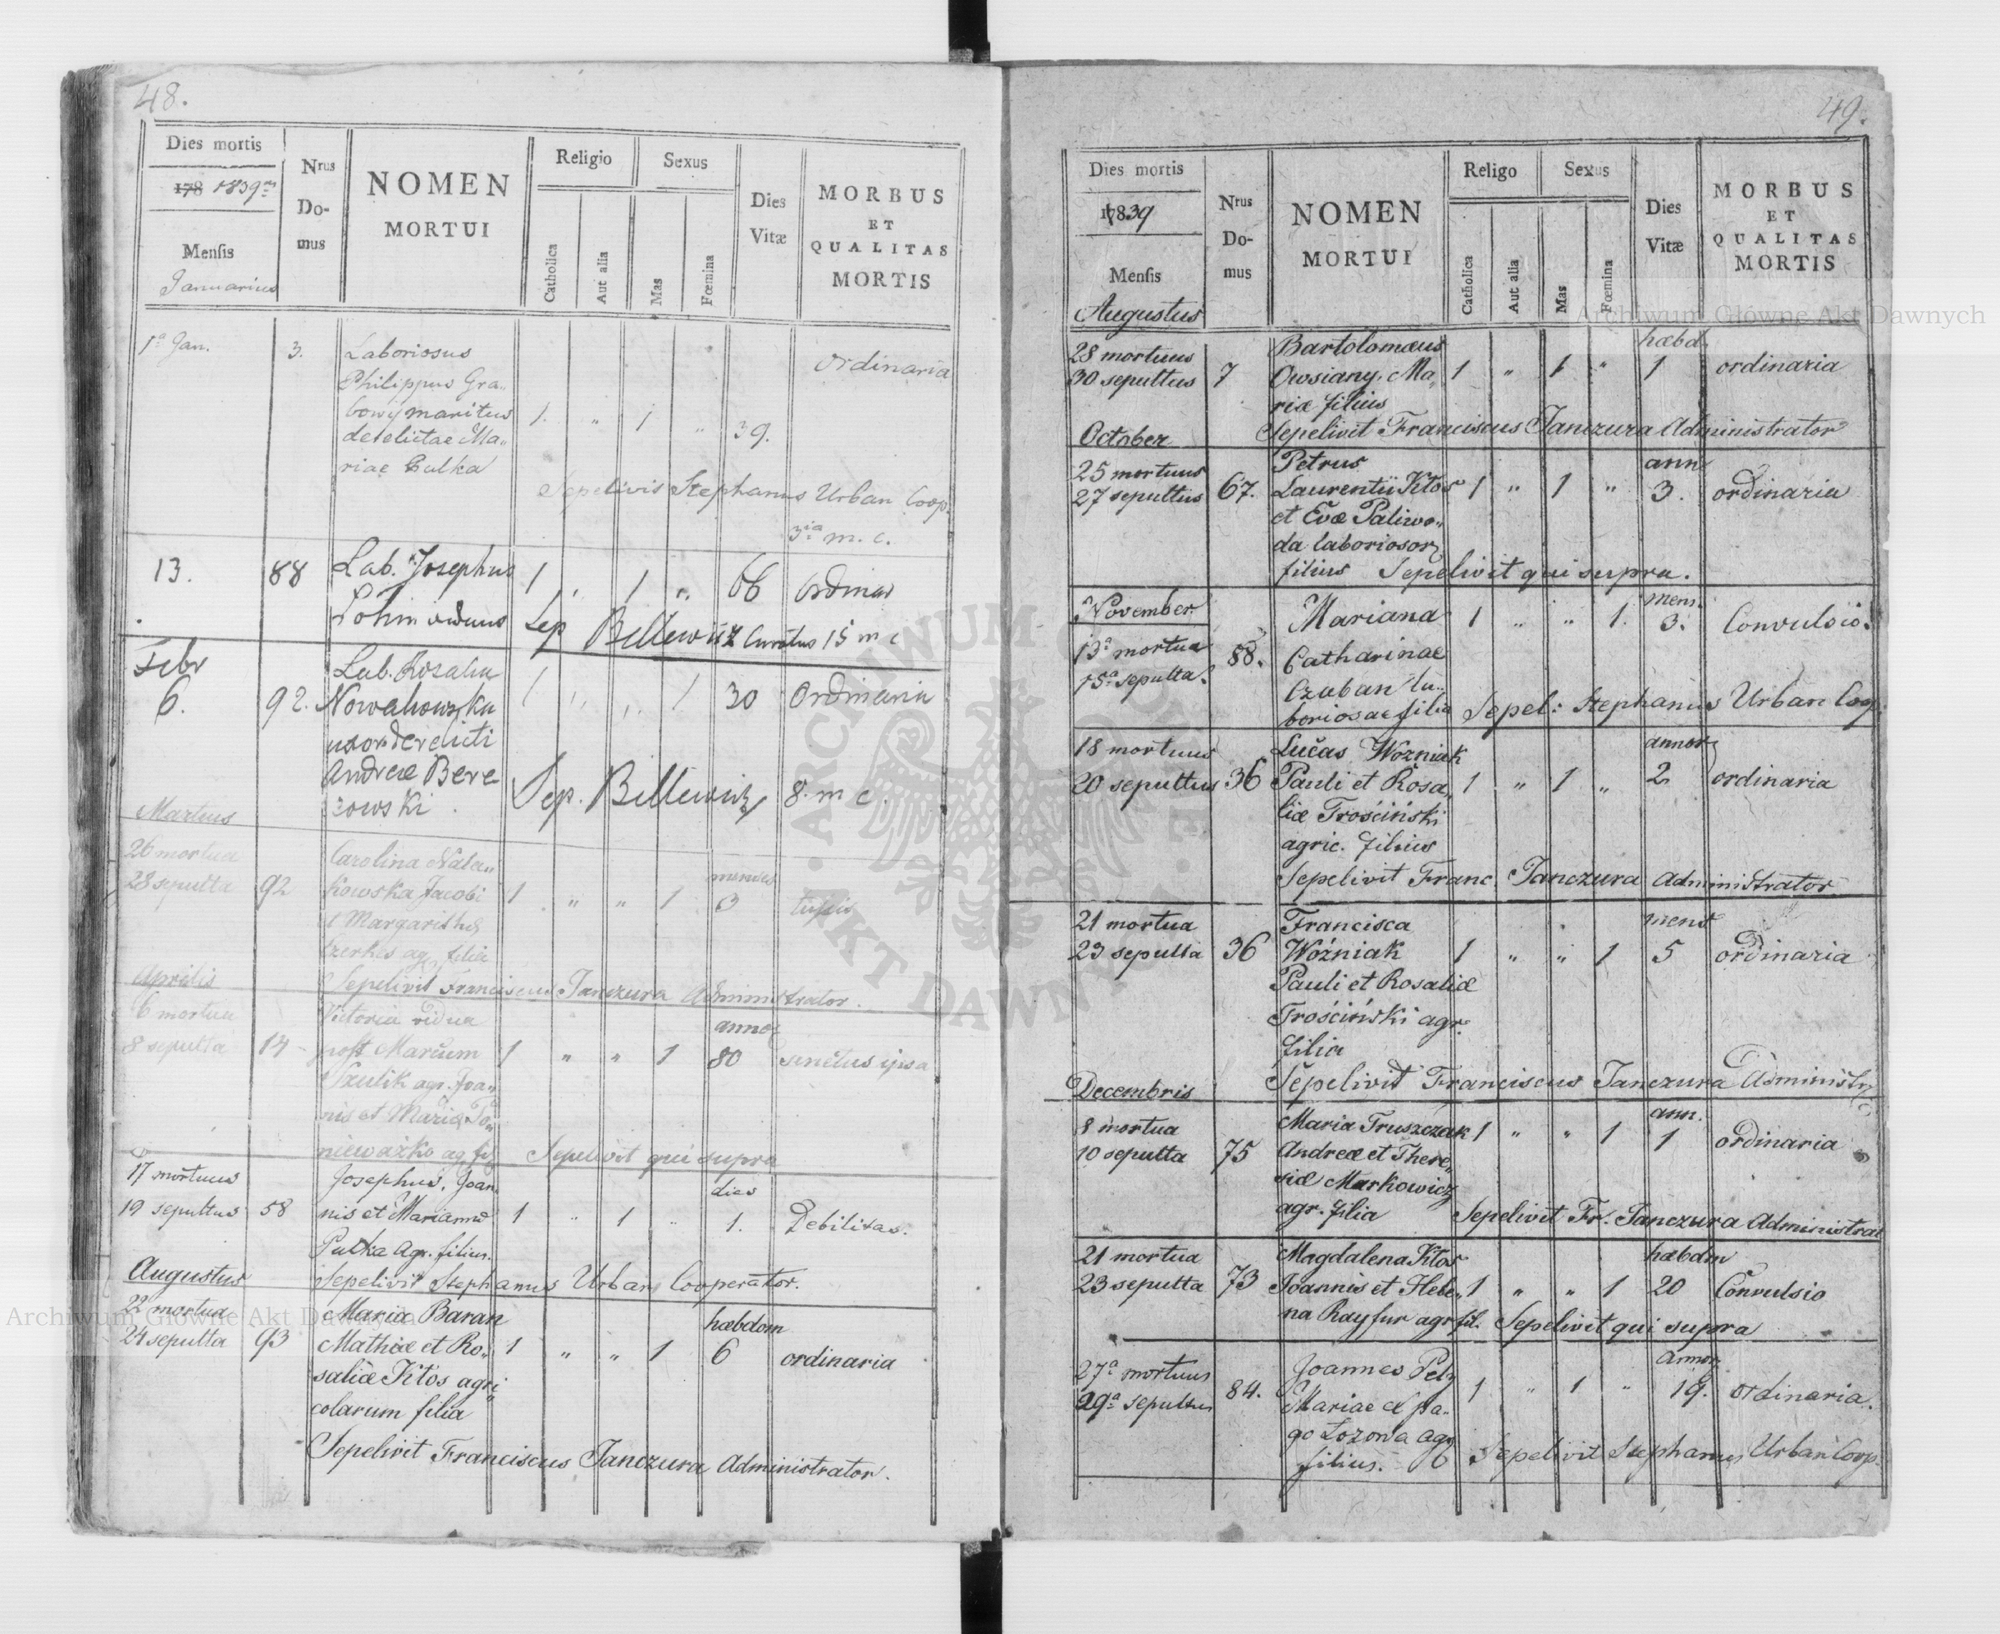 48.
Dies mortis
178 1839
Mensis
Januarius
Nrus
Do-
mus
NOMEN
MORTUI
Religio
Catholica
Aut alia
Sexus
Mas
Fœmina
Dies
Vitæ
MORBUS
ET
QUALITAS
MORTIS
1a Jan. 3. Laboriosus ordinaria
Philippus Gra-
bowij maritus 1. " 1 " 39.
derelictae Ma-
riae Gulka
Sepelivit Stephanus Urban Coop.
3ia m. c.
13. 88 Lab. Josephus 1 " 1 " 66 Ordinar
viduus Sep Billewicz Curatus 15 m c
Febr
6. 92. Lab. Rosalia 1 " " 1 30 Ordinaria
Nowakowska
uxor derelicti
Andreæ Bere
zowski. Sep. Billewicz 8. m c.
Martius
26 mortua Carolina
28 sepulta 92 kowska Jacobi 1 " " 1 mensis 3 tussis
et Margarithæ
agr. filia
Sepelivit Franciscus Janczura Administrator.
Aprilis
6 mortua Victoria vidua
8 sepulta 14 post Marcum 1 " " 1 annor 80 senectus ipsa
Szulik agr. Joa-
nis et Mariæ Po-
niewazko ag. fil Sepelivit qui supra
17 mortuus Josephus, Joan-
19 sepultus 58 nis et Mariannæ 1 " 1 " dies 1. Debilitas.
Pulka Agr. filius.
Sepelivit Stephanus Urban Cooperator.
Augustus
22 mortua Maria Baran
24 sepulta 93 Mathiæ et Ro- 1 " " 1 hæbdom 6 ordinaria
saliæ Kłos agri
colarum filia
Sepelivit Franciscus Janczura Administrator.
49.
Dies mortis
17839
Mensis
Augustus
Nrus
Do-
mus
NOMEN
MORTUI
Religo
Catholica
Aut alia
Sexus
Mas
Fœmina
Dies
Vitæ
MORBUS
ET
QUALITAS
MORTIS
28 mortuus Bartolomæus hæbd.
30 sepultus 7 Owsiany, Ma- 1 " 1 " 1 ordinaria
riæ filius
Sepelivit Franciscus Janczura Administrator
October
25 mortuus Petrus ann
27 sepultus 67. Laurentii Kłos 1 " 1 " 3. ordinaria
et Evæ Paliwo-
da laborioson
filius Sepelivit qui supra.
November
13a mortua 88. Mariana 1 " " 1. mens. 3. Convulsio.
15a sepulta. Catharinae
Czaban la-
boriosae filia Sepel: Stephanus Urban Coop.
18 mortuus Lucas Woźniak annor
20 sepultus 36 Pauli et Rosa- 1 " 1 " 2 ordinaria
liæ Trościński
agric. filius
Sepelivit Franc. Janczura Administrator
21 mortua Francisca mens
23 sepulta 36 Woźniak 1 " " 1 5 ordinaria
Pauli et Rosaliæ
Trościński agr.
filia
Sepelivit Franciscus Janczura Administr
Decembris
8 mortua Maria Truszczak 1 " " 1 ann. 1 ordinaria
10 sepulta 75 Andreæ et There-
siæ Markowicz
agr. filia Sepelivit Fr. Janczura Administrat
21 mortua Magdalena Kłos hæbdm
23 sepulta 73 Joannis et Hele- 1 " " 1 20 Convulsio
na Rayfur agr fil. Sepelivit qui supra
27a mortuus Joannes annor
29a sepultus 84. Mariae 1 " 1 " 19. ordinaria.
go Łozowa agr
filius. Sepelivit Stephanus Urban Coop.
Archiwum Główne Akt Dawnych
Archiwum Główne Akt Dawnych
ARCHIWUM GŁÓWNE AKT DAWNYCH